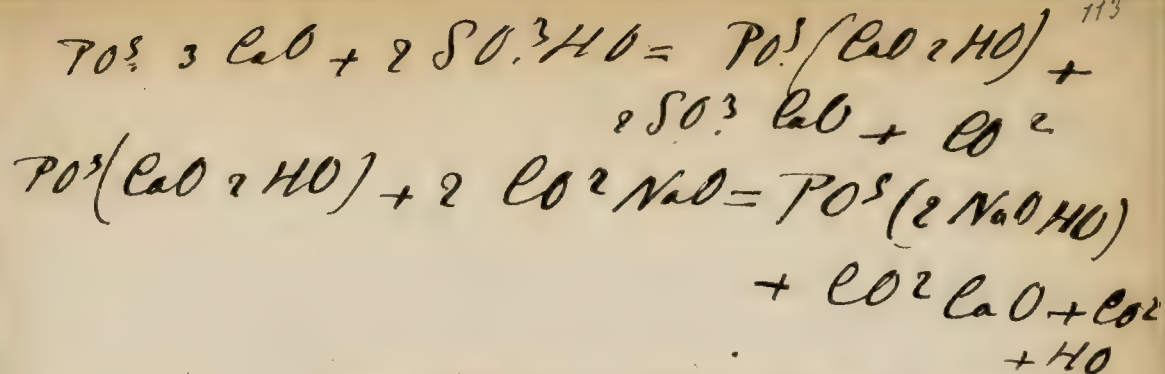 113
PO⁵. 3 CaO + 2 SO.³HO = PO⁵.(CaO 2 HO) +
2 SO³. CaO + CO²
PO⁵(CaO 2 HO) + 2 CO² NaO = PO⁵(2 NaO HO)
+ CO² CaO + CO²
+ HO